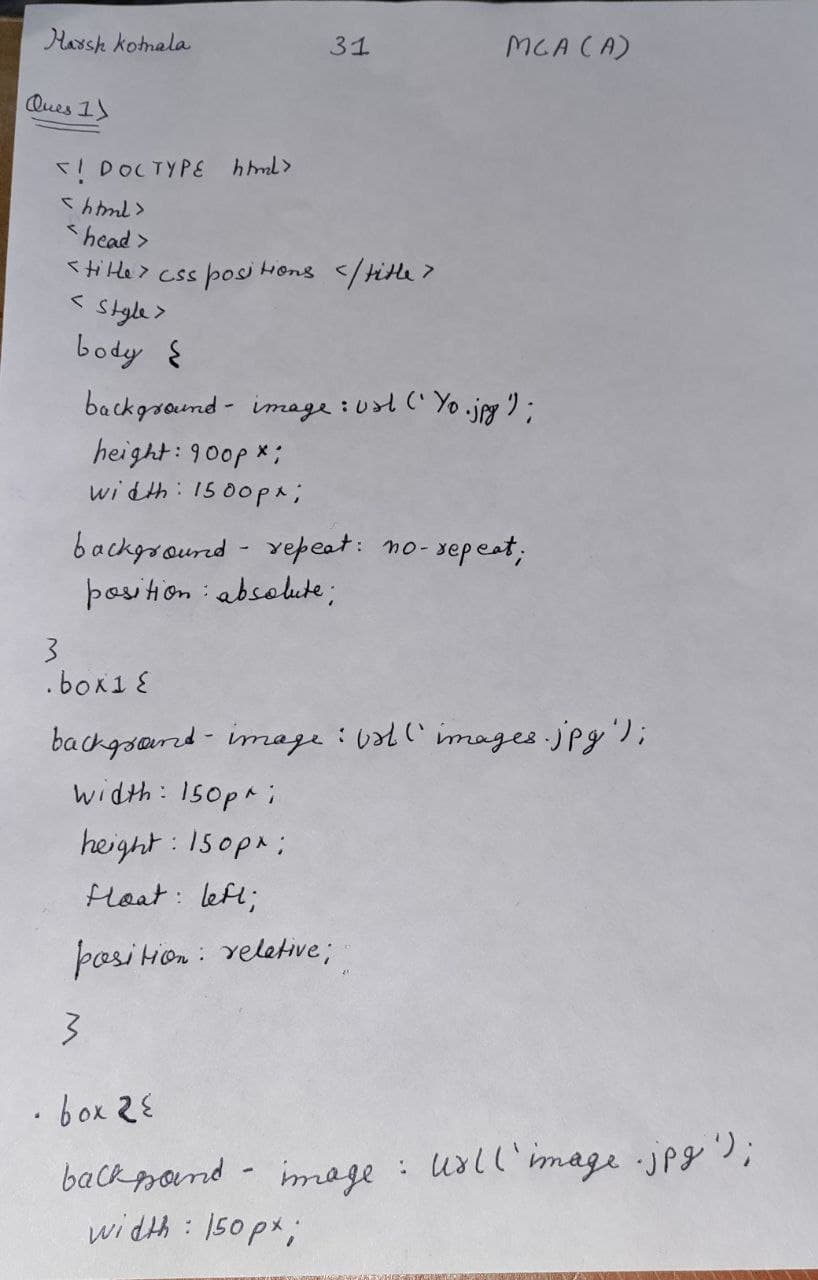 Harsh Kotnala 31 MCA (A)
Ques 1)
<! DOCTYPE html>
<html>
<head>
<title> css positions </title>
<style>
body {
background - image : url ('Yo.jpg');
height: 900px;
width: 1500px;
background - repeat: no-repeat;
position : absolute;
}
.box1 {
background - image : url ('images.jpg');
width: 150px;
height: 150px;
float: left;
position: relative;
}
. box 2 {
background - image : url ('image .jpg');
width : 150px;